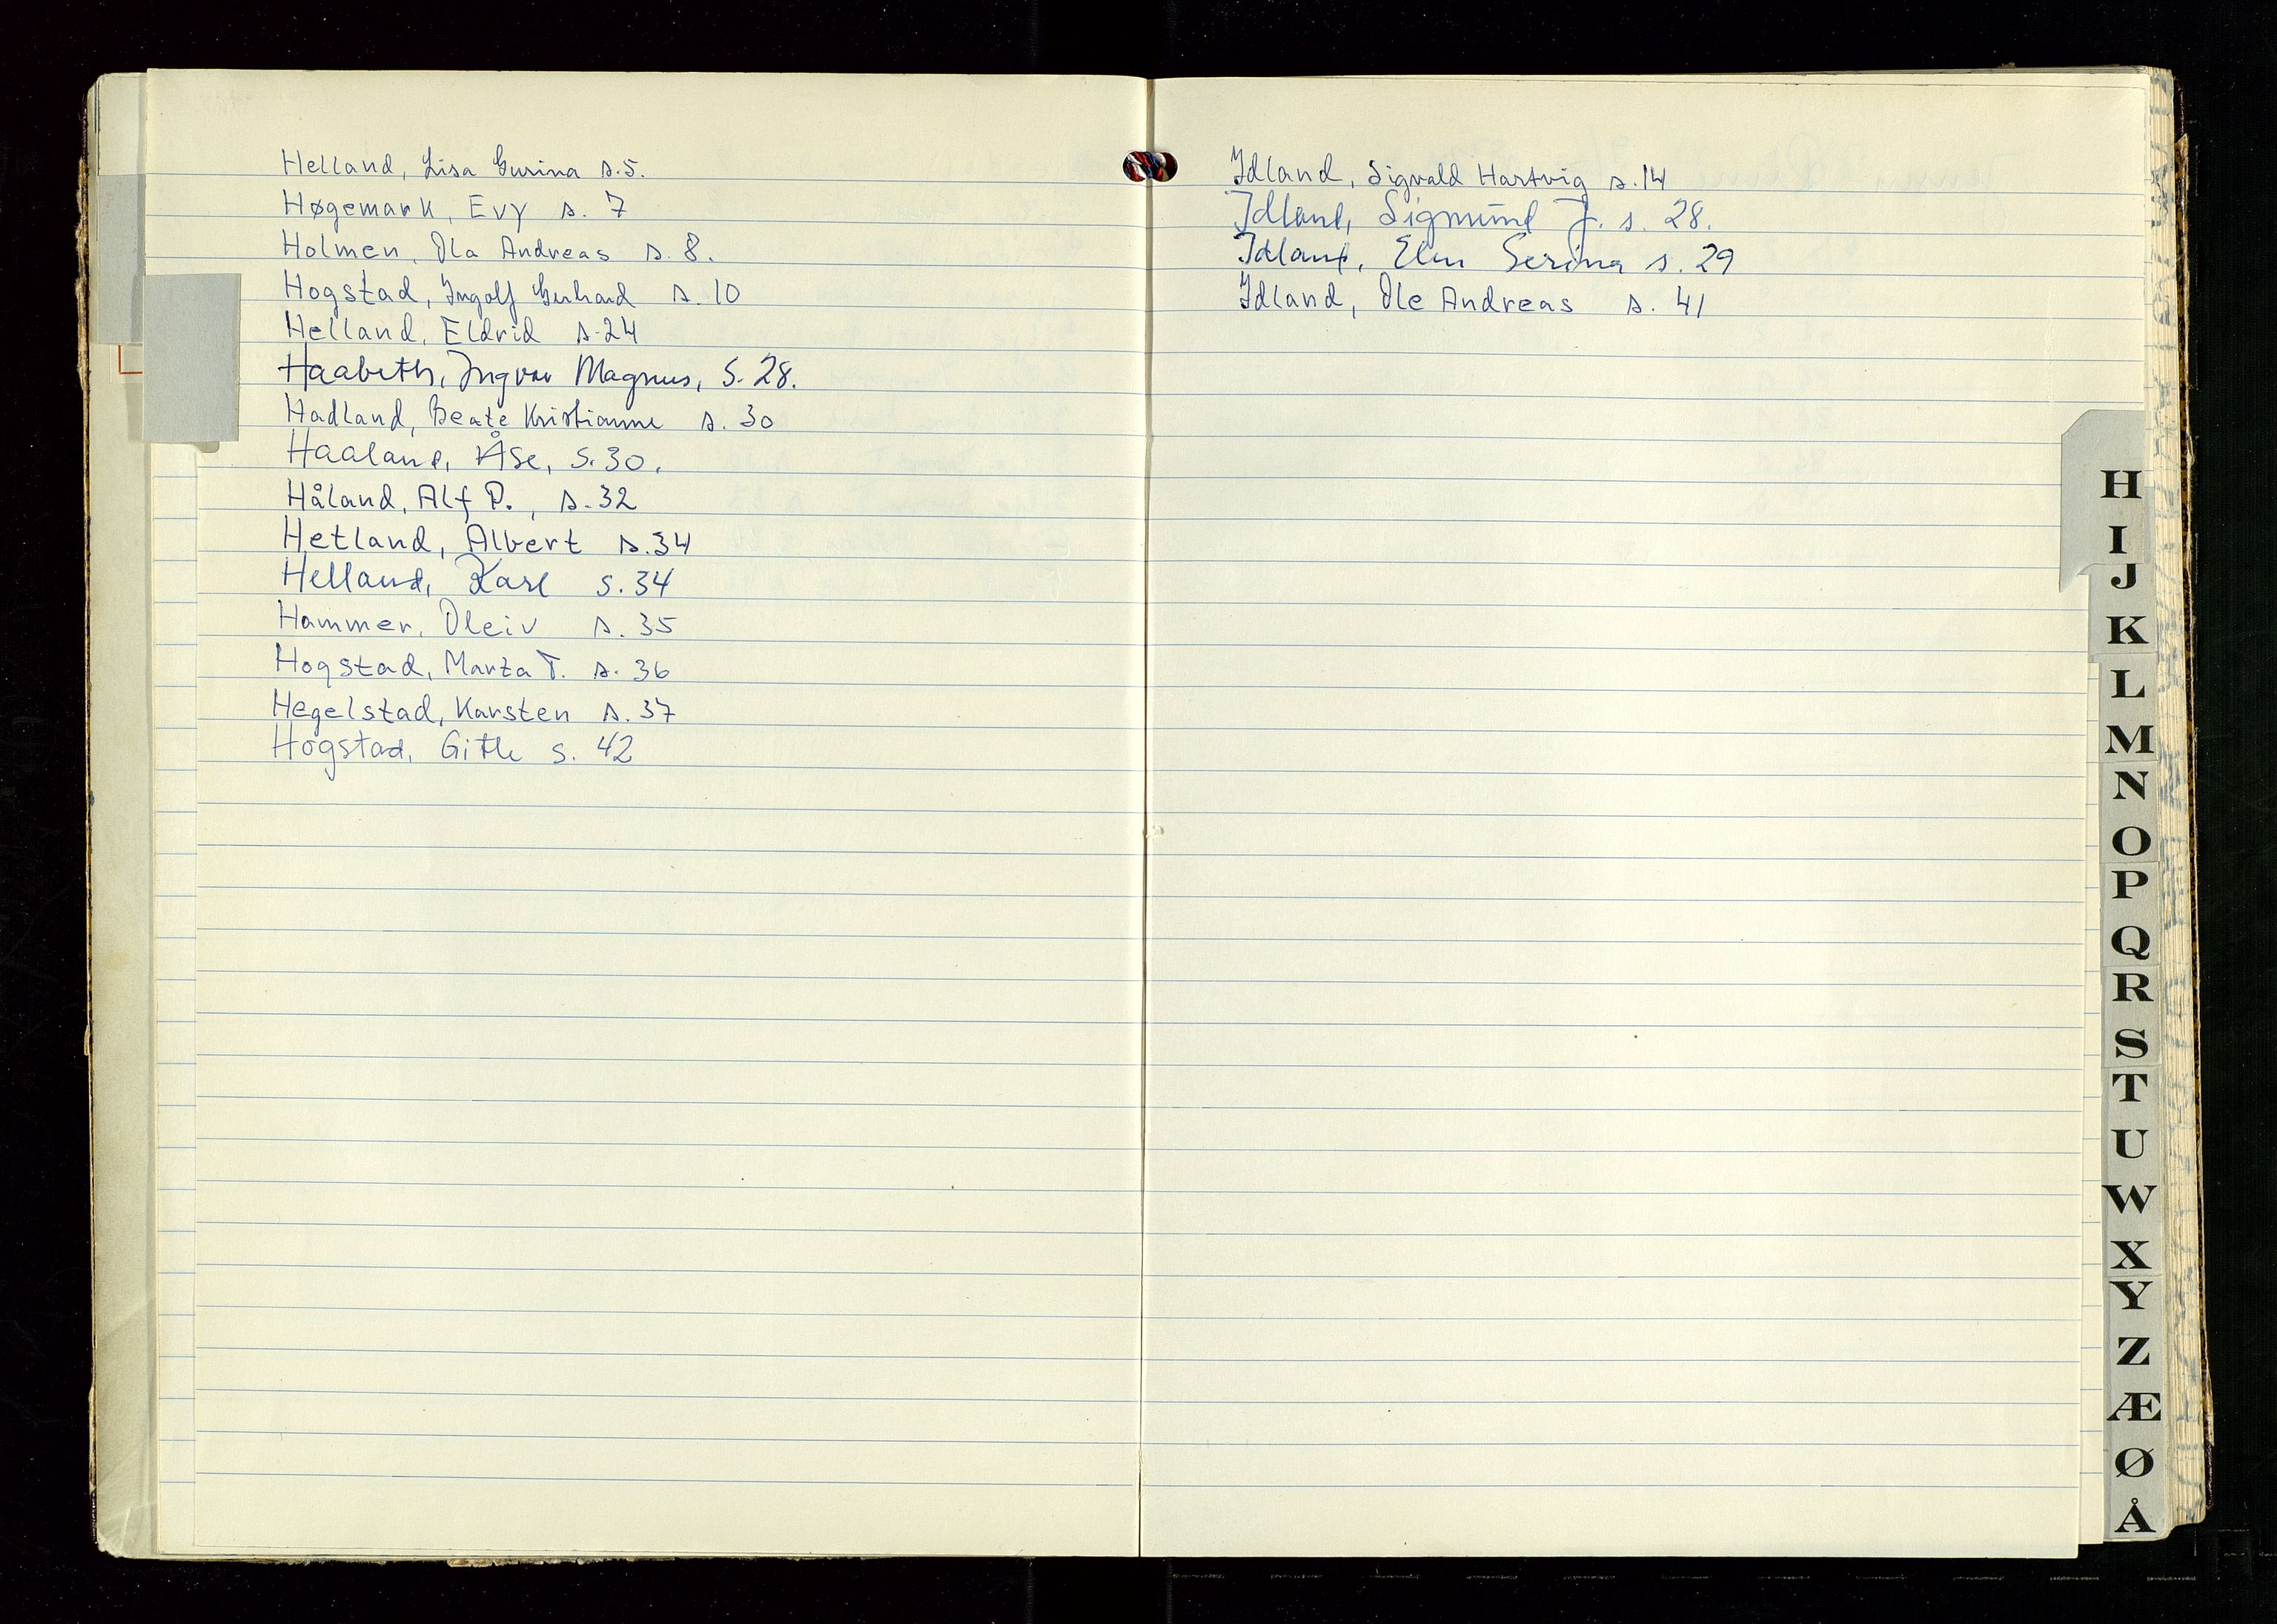 Helland, Lisa Gurina s.5.
Høgemark, Evy s. 7
Holmen, Ola Andreas s. 8.
Hogstad, Ingolf Gerhard s. 10
Helland, Eldrid s.24
Haabeth, Ingvar Magnus, s. 28.
Hadland, Beate Kristianne s. 30
Haaland, Åse, s. 30.
Håland, Alf P., s. 32
Hetland, Albert s.34
Helland, Karl s. 34
Hammer, Oleiv s. 35
Hogstad, Marta T. s. 36
Hegelstad, Karsten s. 37
Hogstad, Gitle s. 42
Idland, Sigvald Hartvig s.14
Idland, Sigmund J. s. 28.
Idland, Elen Serina s. 29
Idland, Ole Andreas s. 41
H
I
J
K
L
M
N
O
P
Q
R
S
T
U
W
X
Y
Z
Æ
Ø
Å